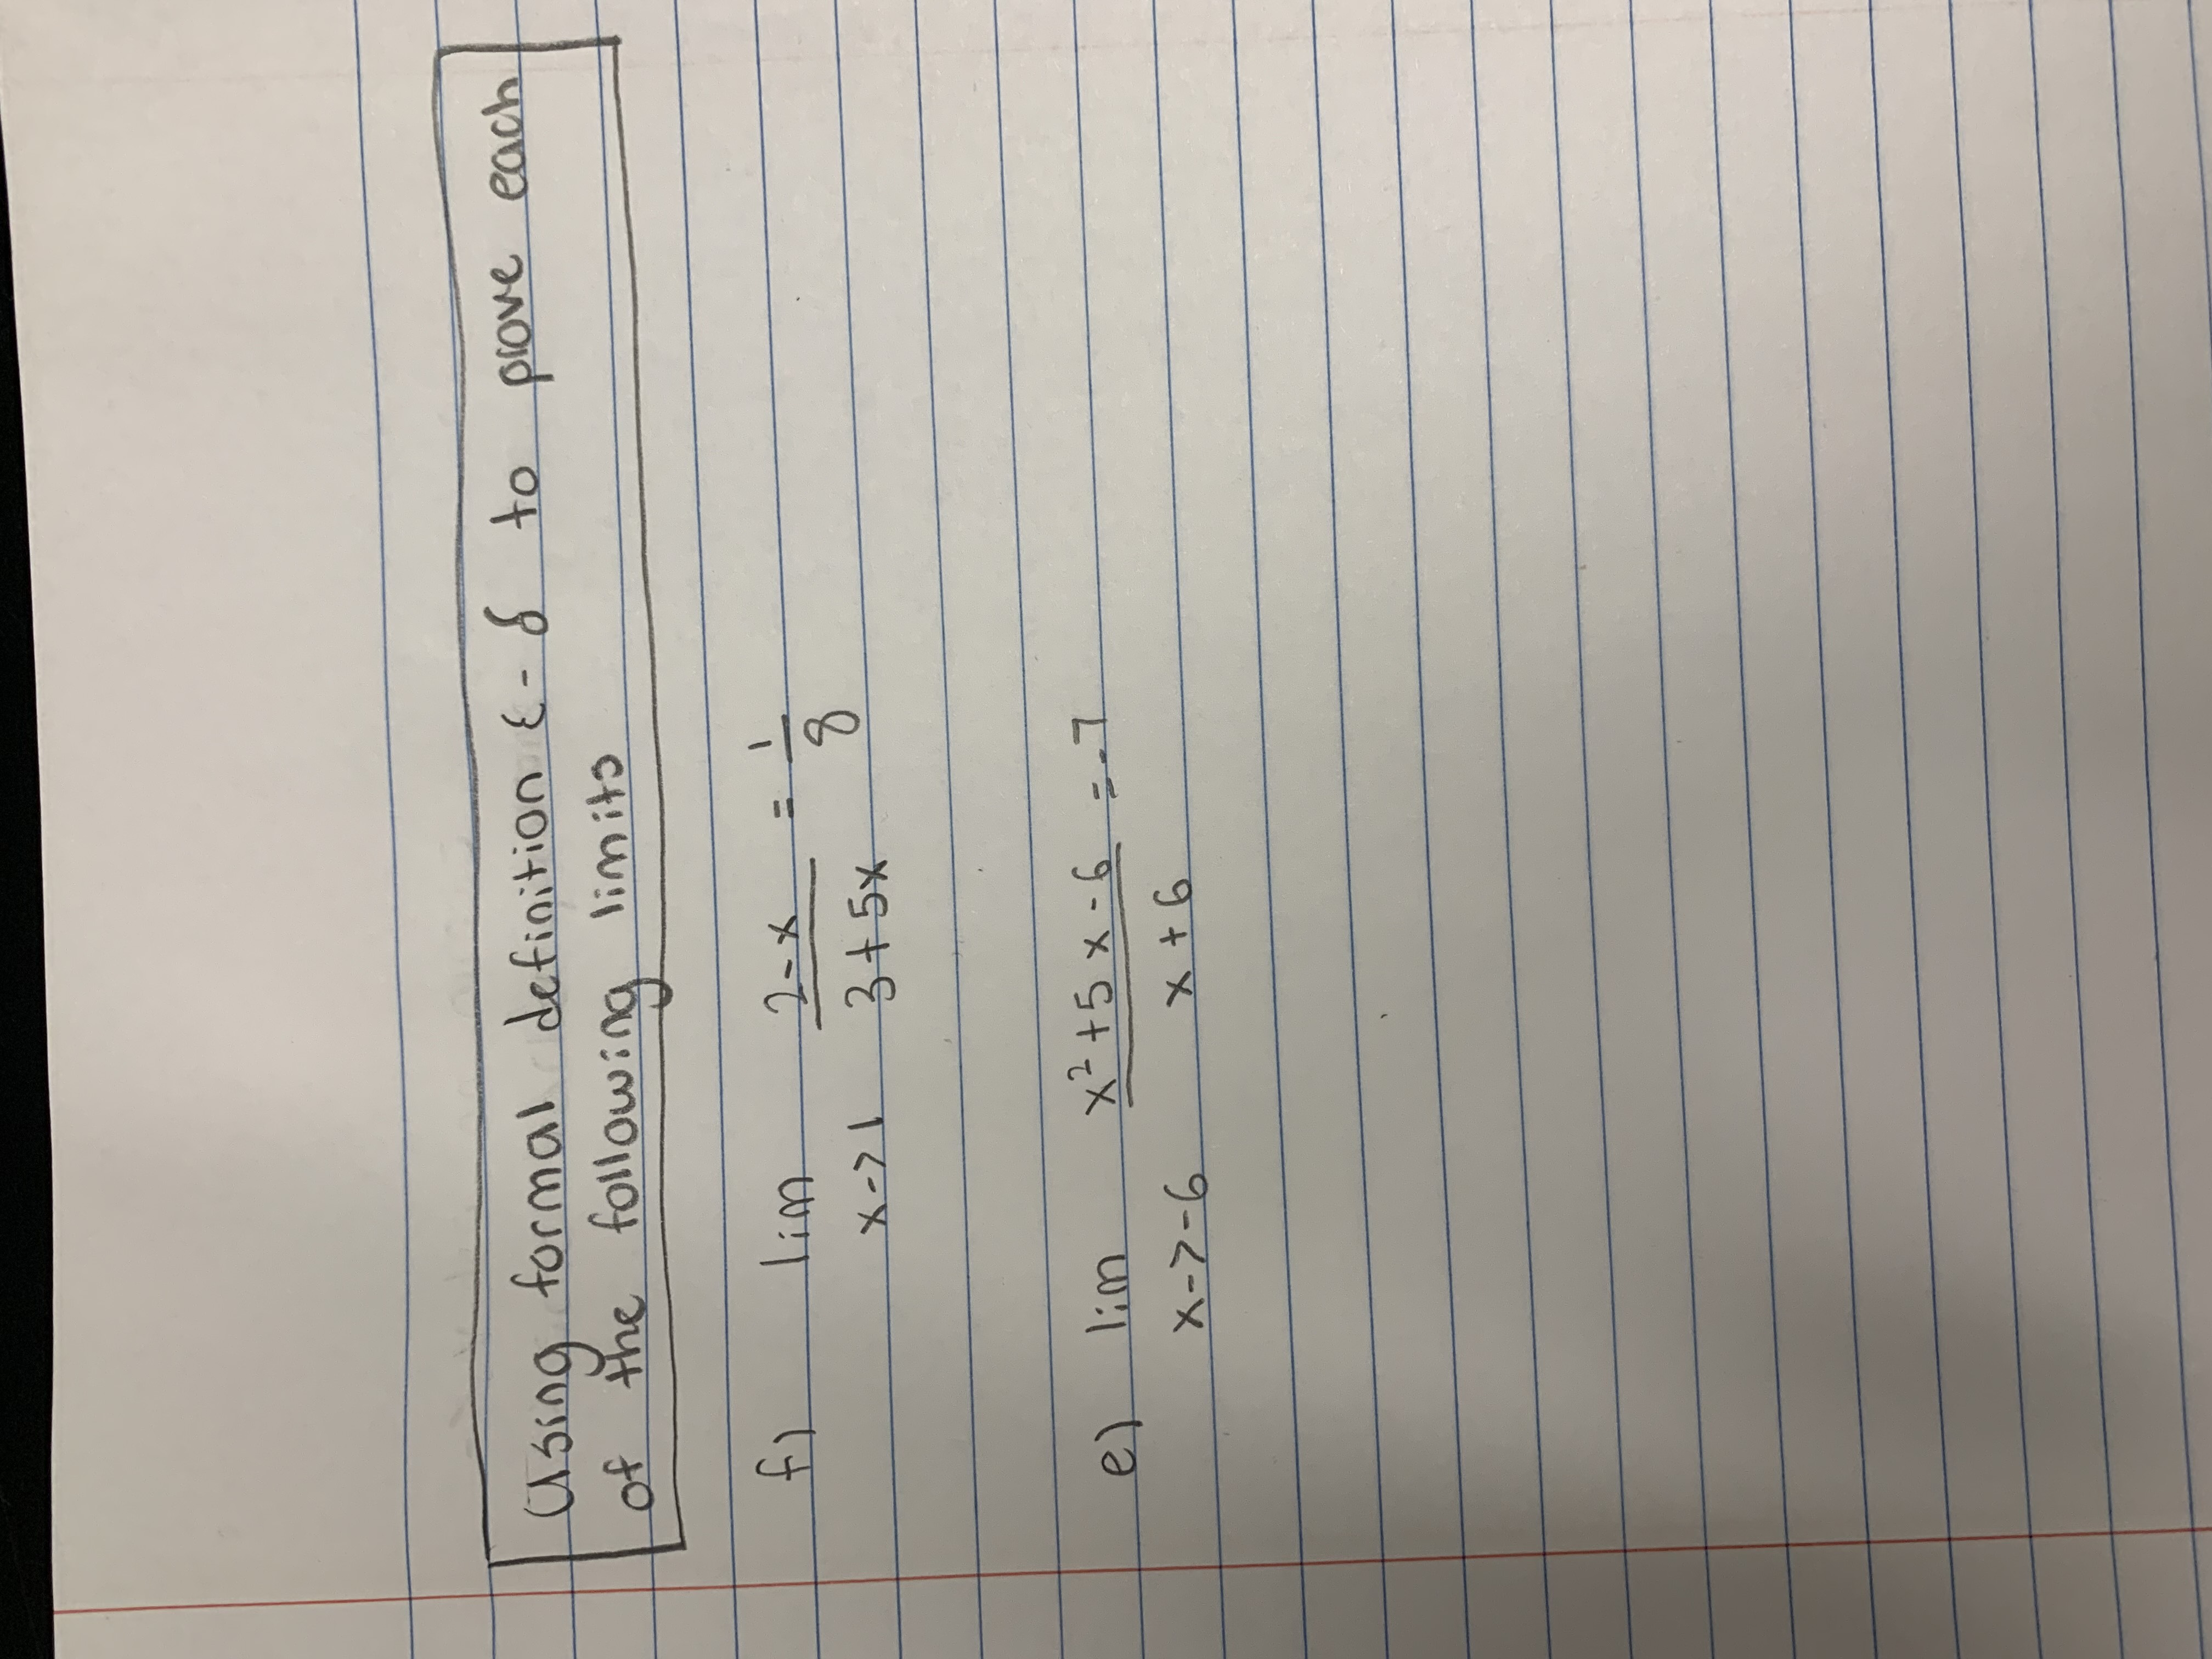 Using formal definition ε-δ to prove each
of the following limits
f) lim 2-x = 1
x->1 3+5x 8
e) lim x²+5x-6 = -7
x->-6 x+6